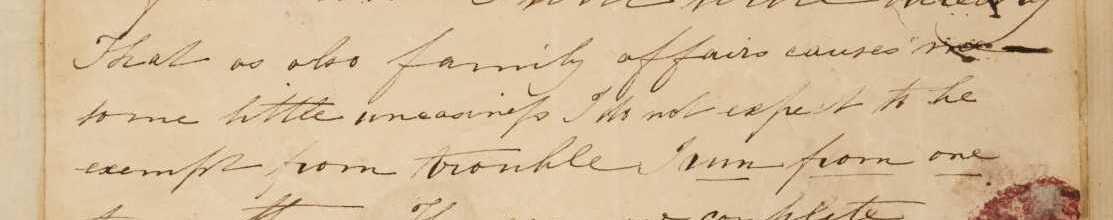 That as also family affairs causes me
some little uneasiness I do not expect to be
exempt from trouble I run from one
complete